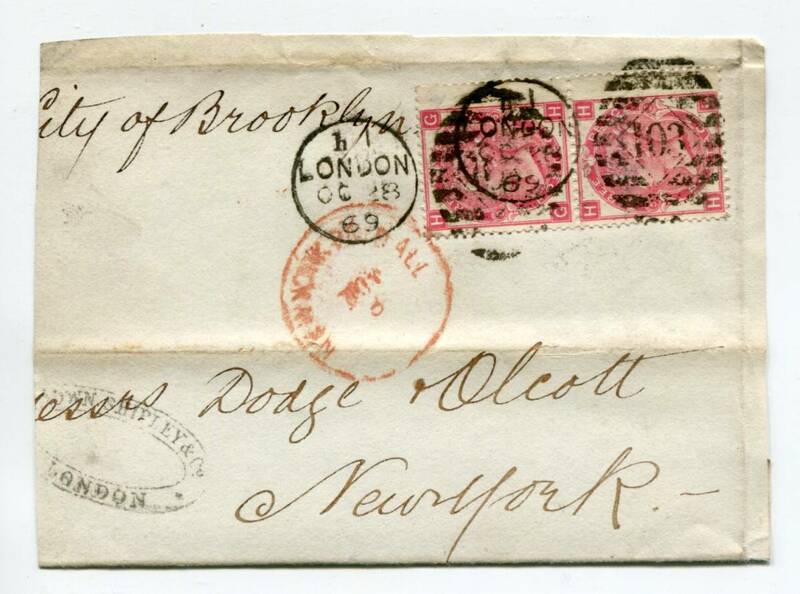 City of Brooklyn
LONDON
OC 28
69
LONDON
OC 28
69
103
G H
H G
H
H H
NEW YORK PAID ALL
NOV
Messrs Dodge & Olcott
New York. -
OWN SHIPLEY & Co
LONDON